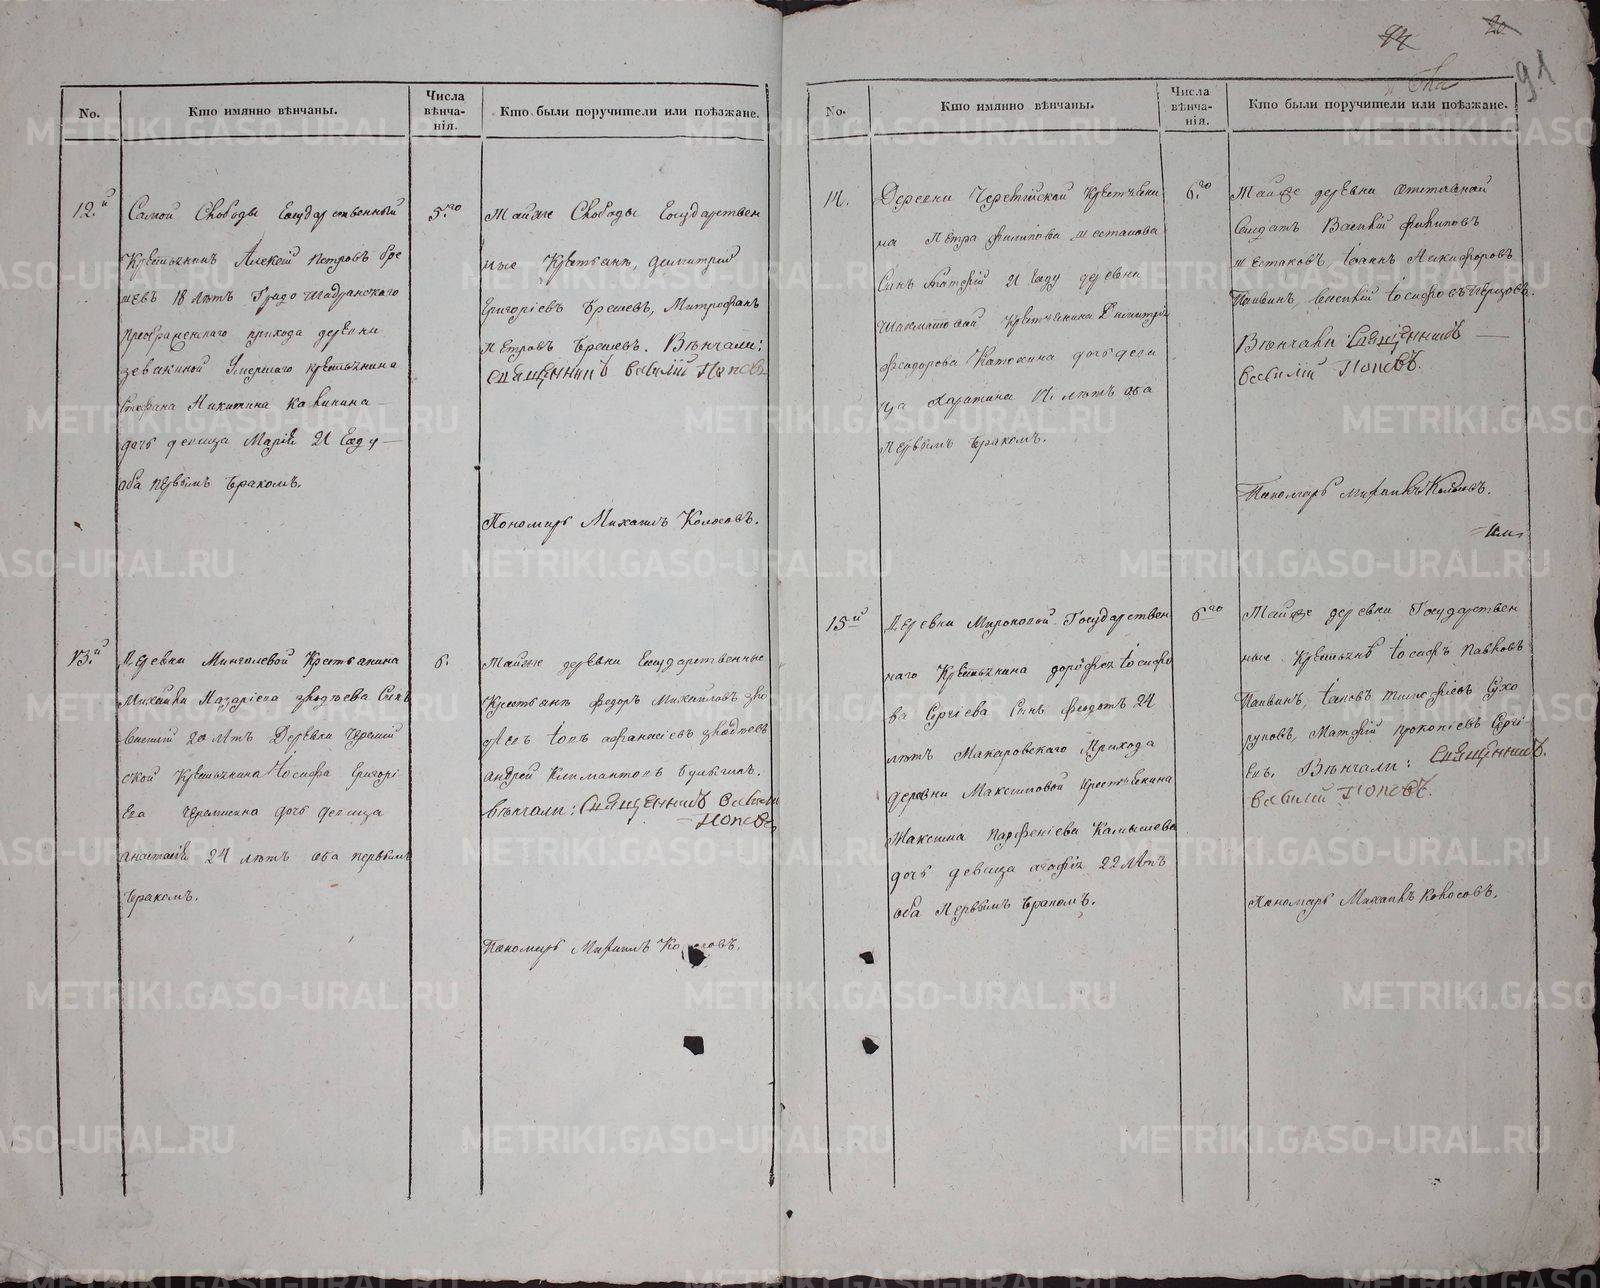 No.
Кто имянно вѣнчаны.
Числа
вѣнча-
нія.
Кто были поручители или поѣзжане.
12.й
Самой Слободы Государственный
Крестьянинъ Алексѣй Петровъ Бре
шевъ 18 лѣтъ Градо Шадринскаго
Преображенскаго прихода деревни
умершаго крестьянина
Стефана Никитина
дочь девица Марія 21 году
оба первымъ бракомъ.
5.го
Тойже Слободы Государствен
ные Крестьяне, Димитрій
Григоріевъ Брешевъ, Митрофанъ
Петровъ Брешевъ. Вѣнчали:
Священникъ Василій Поповъ
Пономарь Михаилъ Колосовъ.
13.й
Деревни Мингалевой Крестьянина
Михайла Назаріева Сынъ
Василій 20 лѣтъ Деревни
ской Крестьянина Іосифа Григорі
ева дочь девица
Анастасія 24 лѣтъ оба первымъ
бракомъ.
6.
Тойже деревни Государственные
Крестьяне Федоръ Михайловъ
Афанасіевъ
Андрей
Вѣнчали: Священникъ Василій
Поповъ
Пономарь Михаилъ Колосовъ.
94
20
91
No.
Кто имянно вѣнчаны.
Числа
вѣнча-
нія.
Кто были поручители или поѣзжане.
14.
Деревни Крестьяни
на Петра Филипова Шестакова
Сынъ 21 году деревни
Крестьянина Димитрія
Феодорова дочь деви
ца лѣтъ оба
Первымъ бракомъ.
6.го
Тойже деревни отставной
Солдатъ Василій Филиповъ
Шестаковъ, Іоаннъ Никифоровъ
Василій Іосифовъ
Вѣнчали Священникъ
Василій Поповъ.
Пономарь Михаилъ Колосовъ.
15й
Деревни Мироновой Государствен
наго Крестьянина Дорофея Іосифо
ва Сергіева Сынъ Феодотъ 24
лѣтъ Макаровскаго Прихода
деревни Максимовой Крестьянина
Максима Парфеніева Камышева
дочь девица Агафія 22 лѣтъ
оба Первымъ бракомъ.
6го
Тойже деревни Государствен
ные Крестьяне Іосифъ Павловъ
Іаковъ Тимофѣевъ Сухо
руковъ, Матфій Прокопіевъ Сергі
евъ. Вѣнчали: Священникъ
Василій Поповъ.
Пономарь Михаилъ Колосовъ.
METRIKI.GASO-URAL.RU